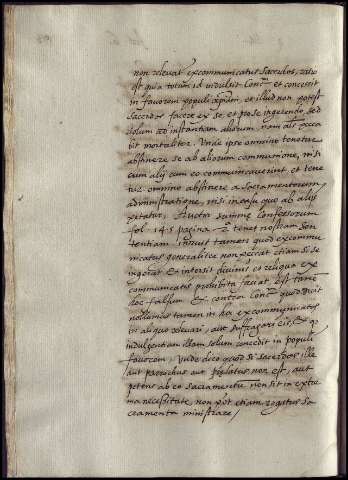 non relevat excommunicatus Sacerdos, ratio
est quia totum id indulsit Conc. et concessit
in favorem populi xpiani, et illud non potest
Sacerdos facere ex se, et p̄ se ingerendo, sed
solum ad instantiam aliorum, nam alr̄ pecca
bit mortaliter. Unde ipse omnino tenetur
abstinere se ab aliorum communione, nisi
cum alij cum eo communicaverint et tene
tur omnino abstinere a sacramentorum
administratione, nisi in casu quo ab alijs
petatur, Auctor summe Confessorum
fol. 145 pagina 2 tenet nostram sen
tentiam innuit tamen quod excommu
nicatus generalice non peccat etiam si se
ingerat et intersit divinis et reliqua ex
communicatis prohibita faciat. Est tamen
hoc falsum et contra Conc. quod dicit
nollumus tamen ut ha excommunicatos
in aliquo relevari, aut suffragari eis, et q
indulgentiam illam solum concedit in populi
favorem, Unde dico quod si sacerdos ille
aut parochus aut prelatus non est, aut
petens ab eo sacramentum non sit in extre
ma necessitate, non pōt etiam rogatus sa
cramenta ministrare /